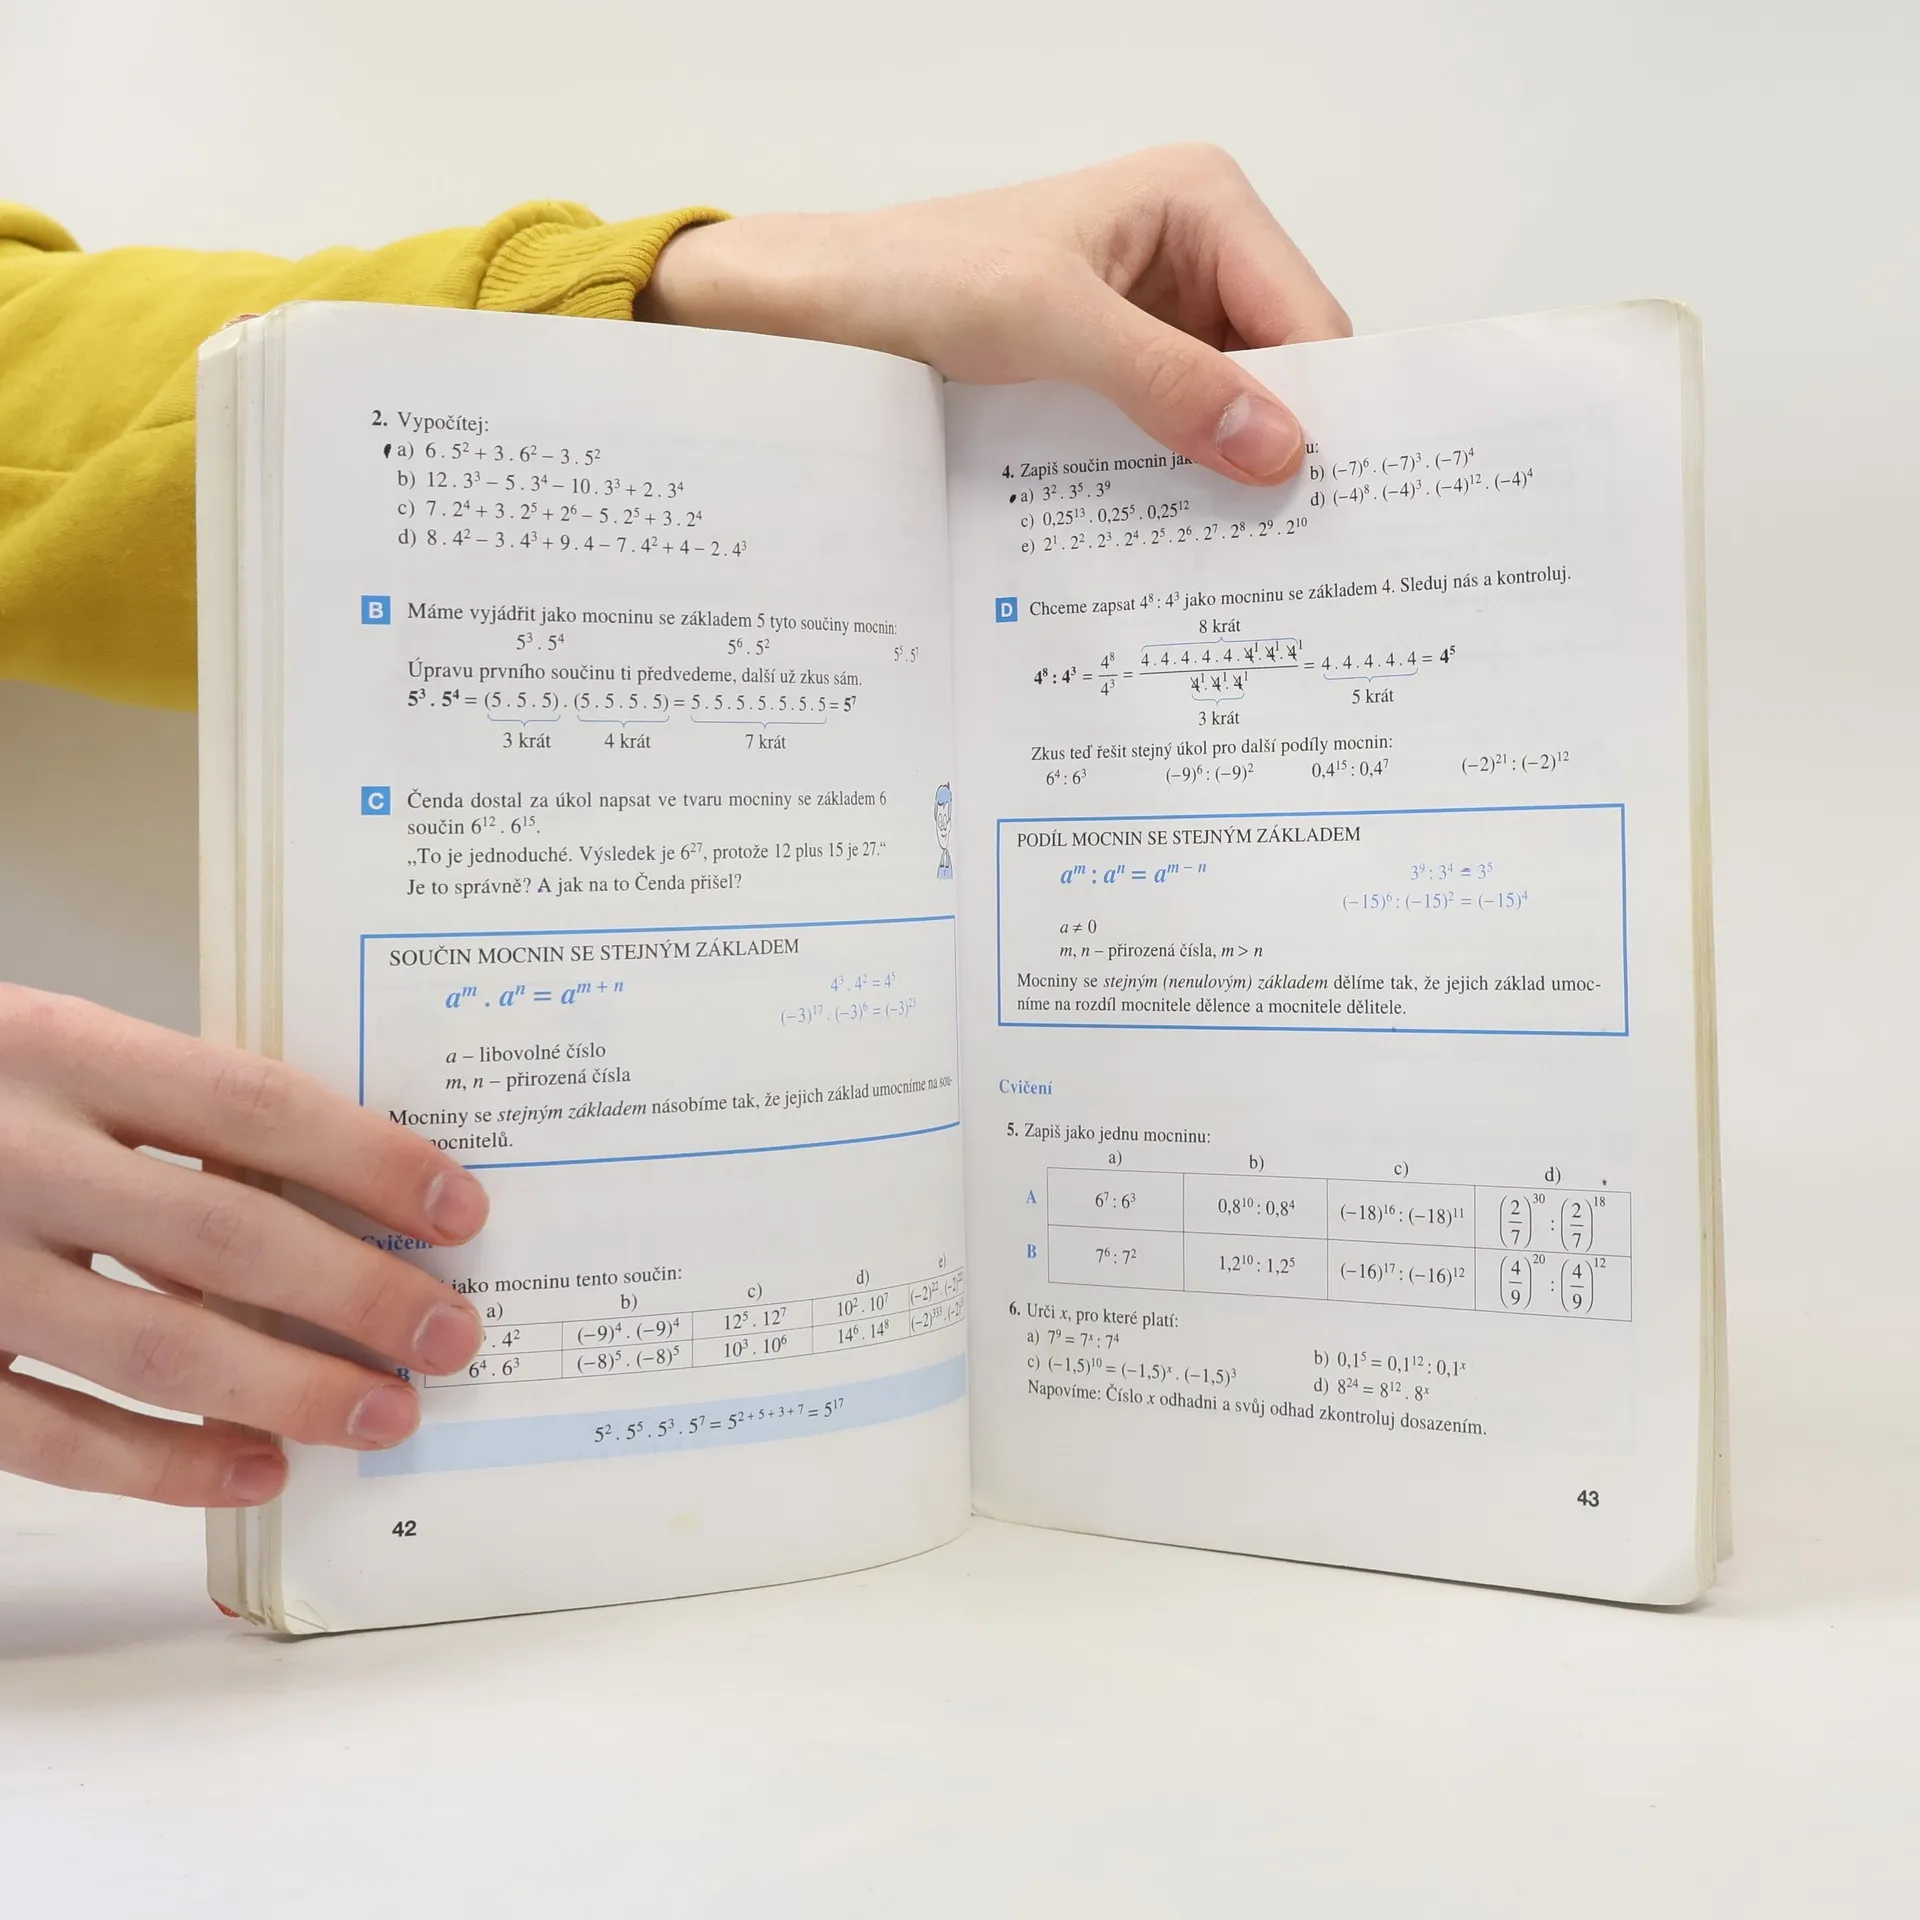 2. Vypočítej:
a) 6 . 5² + 3 . 6² – 3 . 5²
b) 12 . 3³ – 5 . 3⁴ – 10 . 3³ + 2 . 3⁴
c) 7 . 2⁴ + 3 . 2⁵ + 2⁶ – 5 . 2⁵ + 3 . 2⁴
d) 8 . 4² – 3 . 4³ + 9 . 4 – 7 . 4² + 4 – 2 . 4³
B Máme vyjádřit jako mocninu se základem 5 tyto součiny mocnin:
5³ . 5⁴ 5⁶ . 5² 5⁵ . 5⁷
Úpravu prvního součinu ti předvedeme, další už zkus sám.
5³ . 5⁴ = (5 . 5 . 5) . (5 . 5 . 5 . 5) = 5 . 5 . 5 . 5 . 5 . 5 . 5 = 5⁷
3 krát 4 krát 7 krát
C Čenda dostal za úkol napsat ve tvaru mocniny se základem 6
součin 6¹² . 6¹⁵.
„To je jednoduché. Výsledek je 6²⁷, protože 12 plus 15 je 27.“
Je to správně? A jak na to Čenda přišel?
SOUČIN MOCNIN SE STEJNÝM ZÁKLADEM
aᵐ . aⁿ = aᵐ ⁺ ⁿ 4³ . 4² = 4⁵
(–3)¹⁷ . (–3)⁶ = (–3)²³
a – libovolné číslo
m, n – přirozená čísla
Mocniny se stejným základem násobíme tak, že jejich základ umocníme na sou-
ocnitelů.
Cvičení
jako mocninu tento součin:
a) b) c) d) e)
. 4² (–9)⁴ . (–9)⁴ 12⁵ . 12⁷ 10² . 10⁷ (–2)²² . (–2)
B 6⁴ . 6³ (–8)⁵ . (–8)⁵ 10³ . 10⁶ 14⁶ . 14⁸ (–2)³³³ . (–2)
5² . 5⁵ . 5³ . 5⁷ = 5² ⁺ ⁵ ⁺ ³ ⁺ ⁷ = 5¹⁷
42
4. Zapiš součin mocnin jak u:
a) 3² . 3⁵ . 3⁹ b) (–7)⁶ . (–7)³ . (–7)⁴
c) 0,25¹³ . 0,25⁵ . 0,25¹² d) (–4)⁸ . (–4)³ . (–4)¹² . (–4)⁴
e) 2¹ . 2² . 2³ . 2⁴ . 2⁵ . 2⁶ . 2⁷ . 2⁸ . 2⁹ . 2¹⁰
D Chceme zapsat 4⁸ : 4³ jako mocninu se základem 4. Sleduj nás a kontroluj.
8 krát
4⁸ : 4³ = 4⁸/4³ = 4 . 4 . 4 . 4 . 4 . 4¹ . 4¹ . 4¹/4¹ . 4¹ . 4¹ = 4 . 4 . 4 . 4 . 4 = 4⁵
3 krát 5 krát
Zkus teď řešit stejný úkol pro další podíly mocnin:
6⁴ : 6³ (–9)⁶ : (–9)² 0,4¹⁵ : 0,4⁷ (–2)²¹ : (–2)¹²
PODÍL MOCNIN SE STEJNÝM ZÁKLADEM
aᵐ : aⁿ = aᵐ ⁻ ⁿ 3⁹ : 3⁴ = 3⁵
(–15)⁶ : (–15)² = (–15)⁴
a ≠ 0
m, n – přirozená čísla, m > n
Mocniny se stejným (nenulovým) základem dělíme tak, že jejich základ umoc-
níme na rozdíl mocnitele dělence a mocnitele dělitele.
Cvičení
5. Zapiš jako jednu mocninu:
a) b) c) d)
A 6⁷ : 6³ 0,8¹⁰ : 0,8⁴ (–18)¹⁶ : (–18)¹¹ (2/7)³⁰ : (2/7)¹⁸
B 7⁶ : 7² 1,2¹⁰ : 1,2⁵ (–16)¹⁷ : (–16)¹² (4/9)²⁰ : (4/9)¹²
6. Urči x, pro které platí:
a) 7⁹ = 7ˣ : 7⁴ b) 0,1⁵ = 0,1¹² : 0,1ˣ
c) (–1,5)¹⁰ = (–1,5)ˣ . (–1,5)³ d) 8²⁴ = 8¹² . 8ˣ
Napovíme: Číslo x odhadni a svůj odhad zkontroluj dosazením.
43